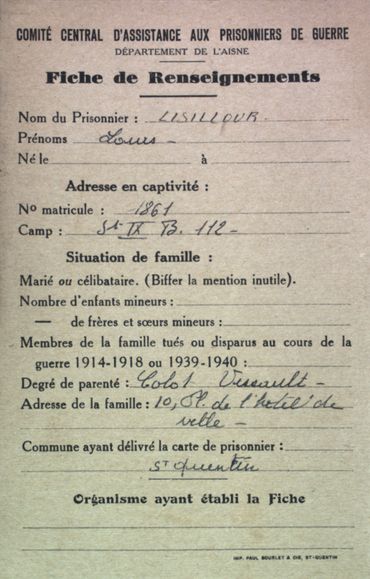 COMITÉ CENTRAL D'ASSISTANCE AUX PRISONNIERS DE GUERRE
DÉPARTEMENT DE L'AISNE
Fiche de Renseignements
Nom du Prisonnier : LISILLOUR.
Prénoms Louis -
Né le à
Adresse en captivité :
No matricule : 1861
Camp : St IX B. 112 -
Situation de famille :
Marié ou célibataire. (Biffer la mention inutile).
Nombre d'enfants mineurs :
— de frères et sœurs mineurs :
Membres de la famille tués ou disparus au cours de la
guerre 1914-1918 ou 1939-1940 :
Degré de parenté : Colot -
Adresse de la famille : 10, Pl. de l'hotel de
ville -
Commune ayant délivré la carte de prisonnier :
St Quentin
Organisme ayant établi la Fiche
IMP. PAUL BOURLET & CIE, ST-QUENTIN